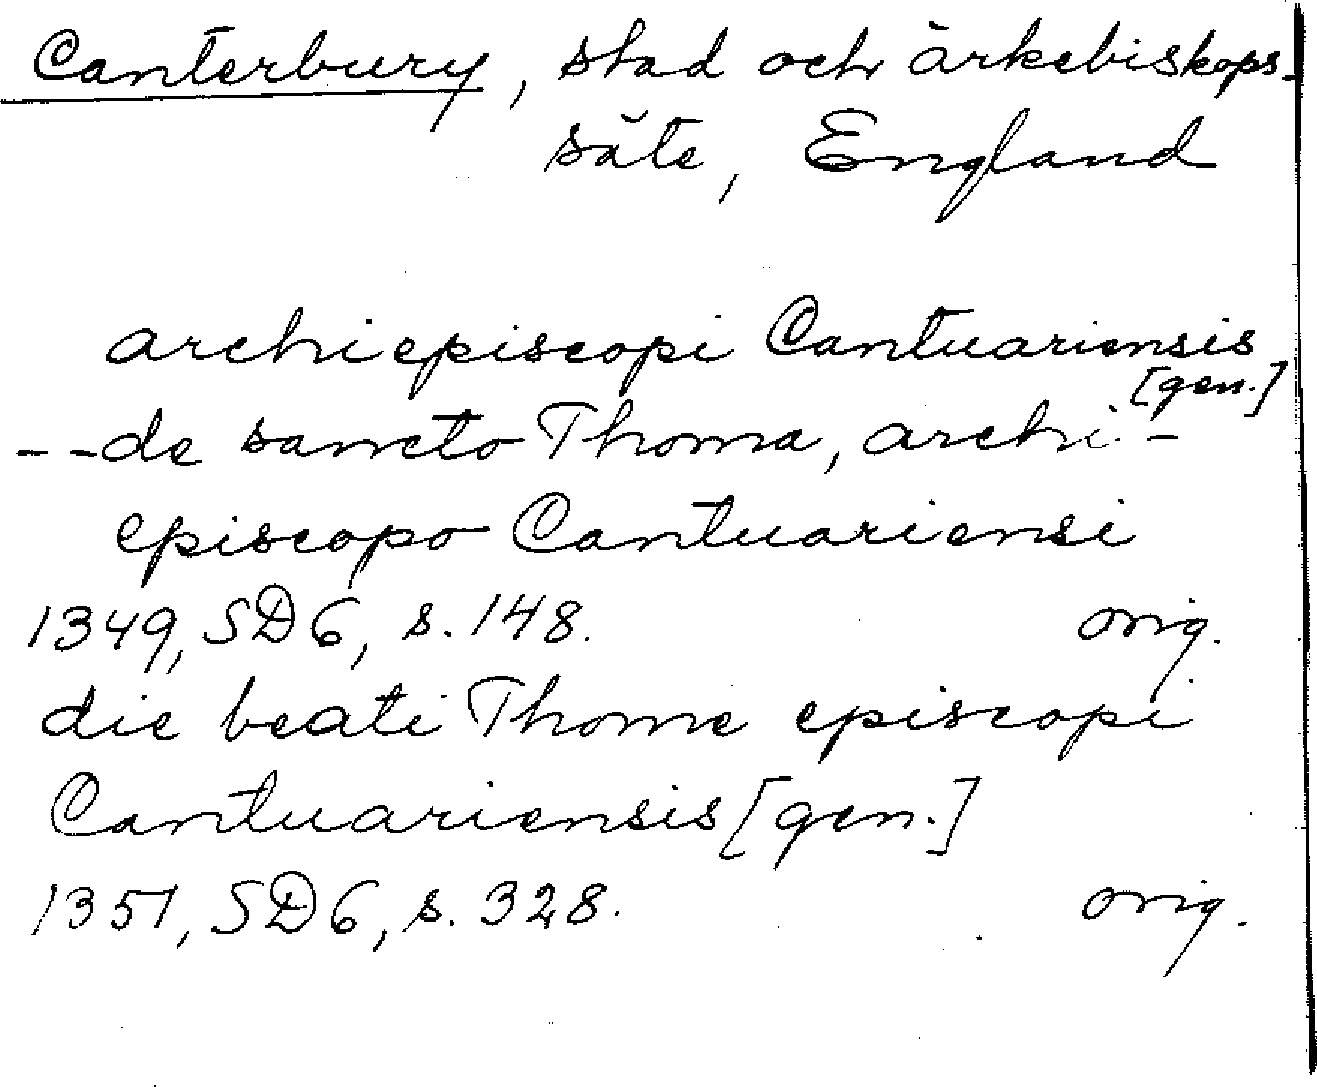 Canterbury, stad och ärkebiskops-
säte, England
archiepiscopi Cantuariensis
[gen.]
--de sancto Thoma, archi-
episcopo Cantuariensi
1349, SD 6, s. 148. orig.
die beati Thome episcopi
Cantuariensis [gen.]
1351, SD 6, s. 328. orig.